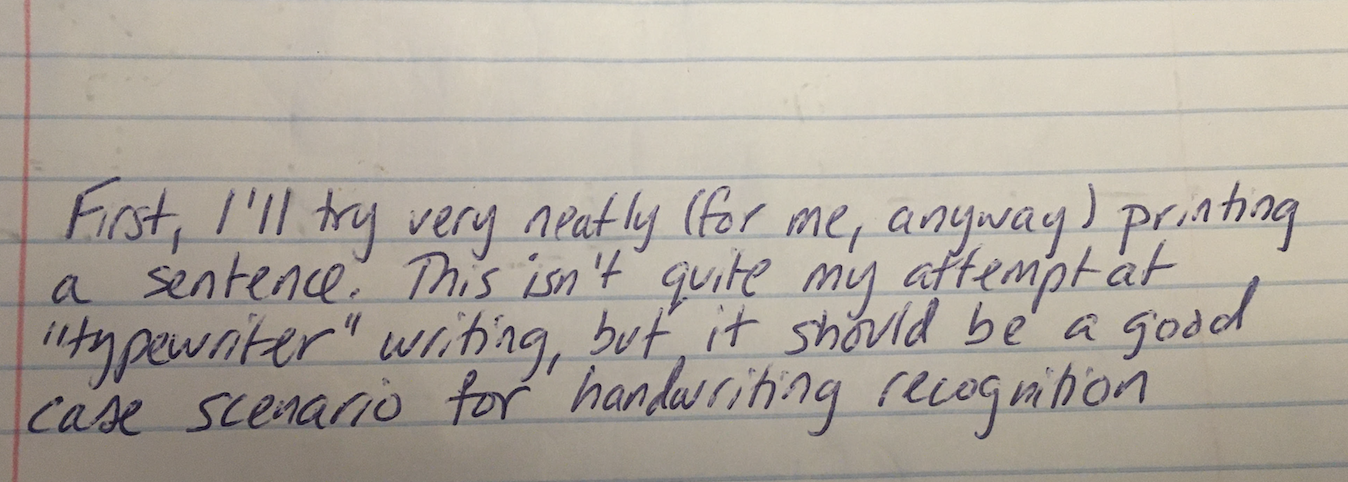 First, I'll try very neatly (for me, anyway) printing
a sentence. This isn't quite my attempt at
"typewriter" writing, but it should be a good
case scenario for handwriting recognition